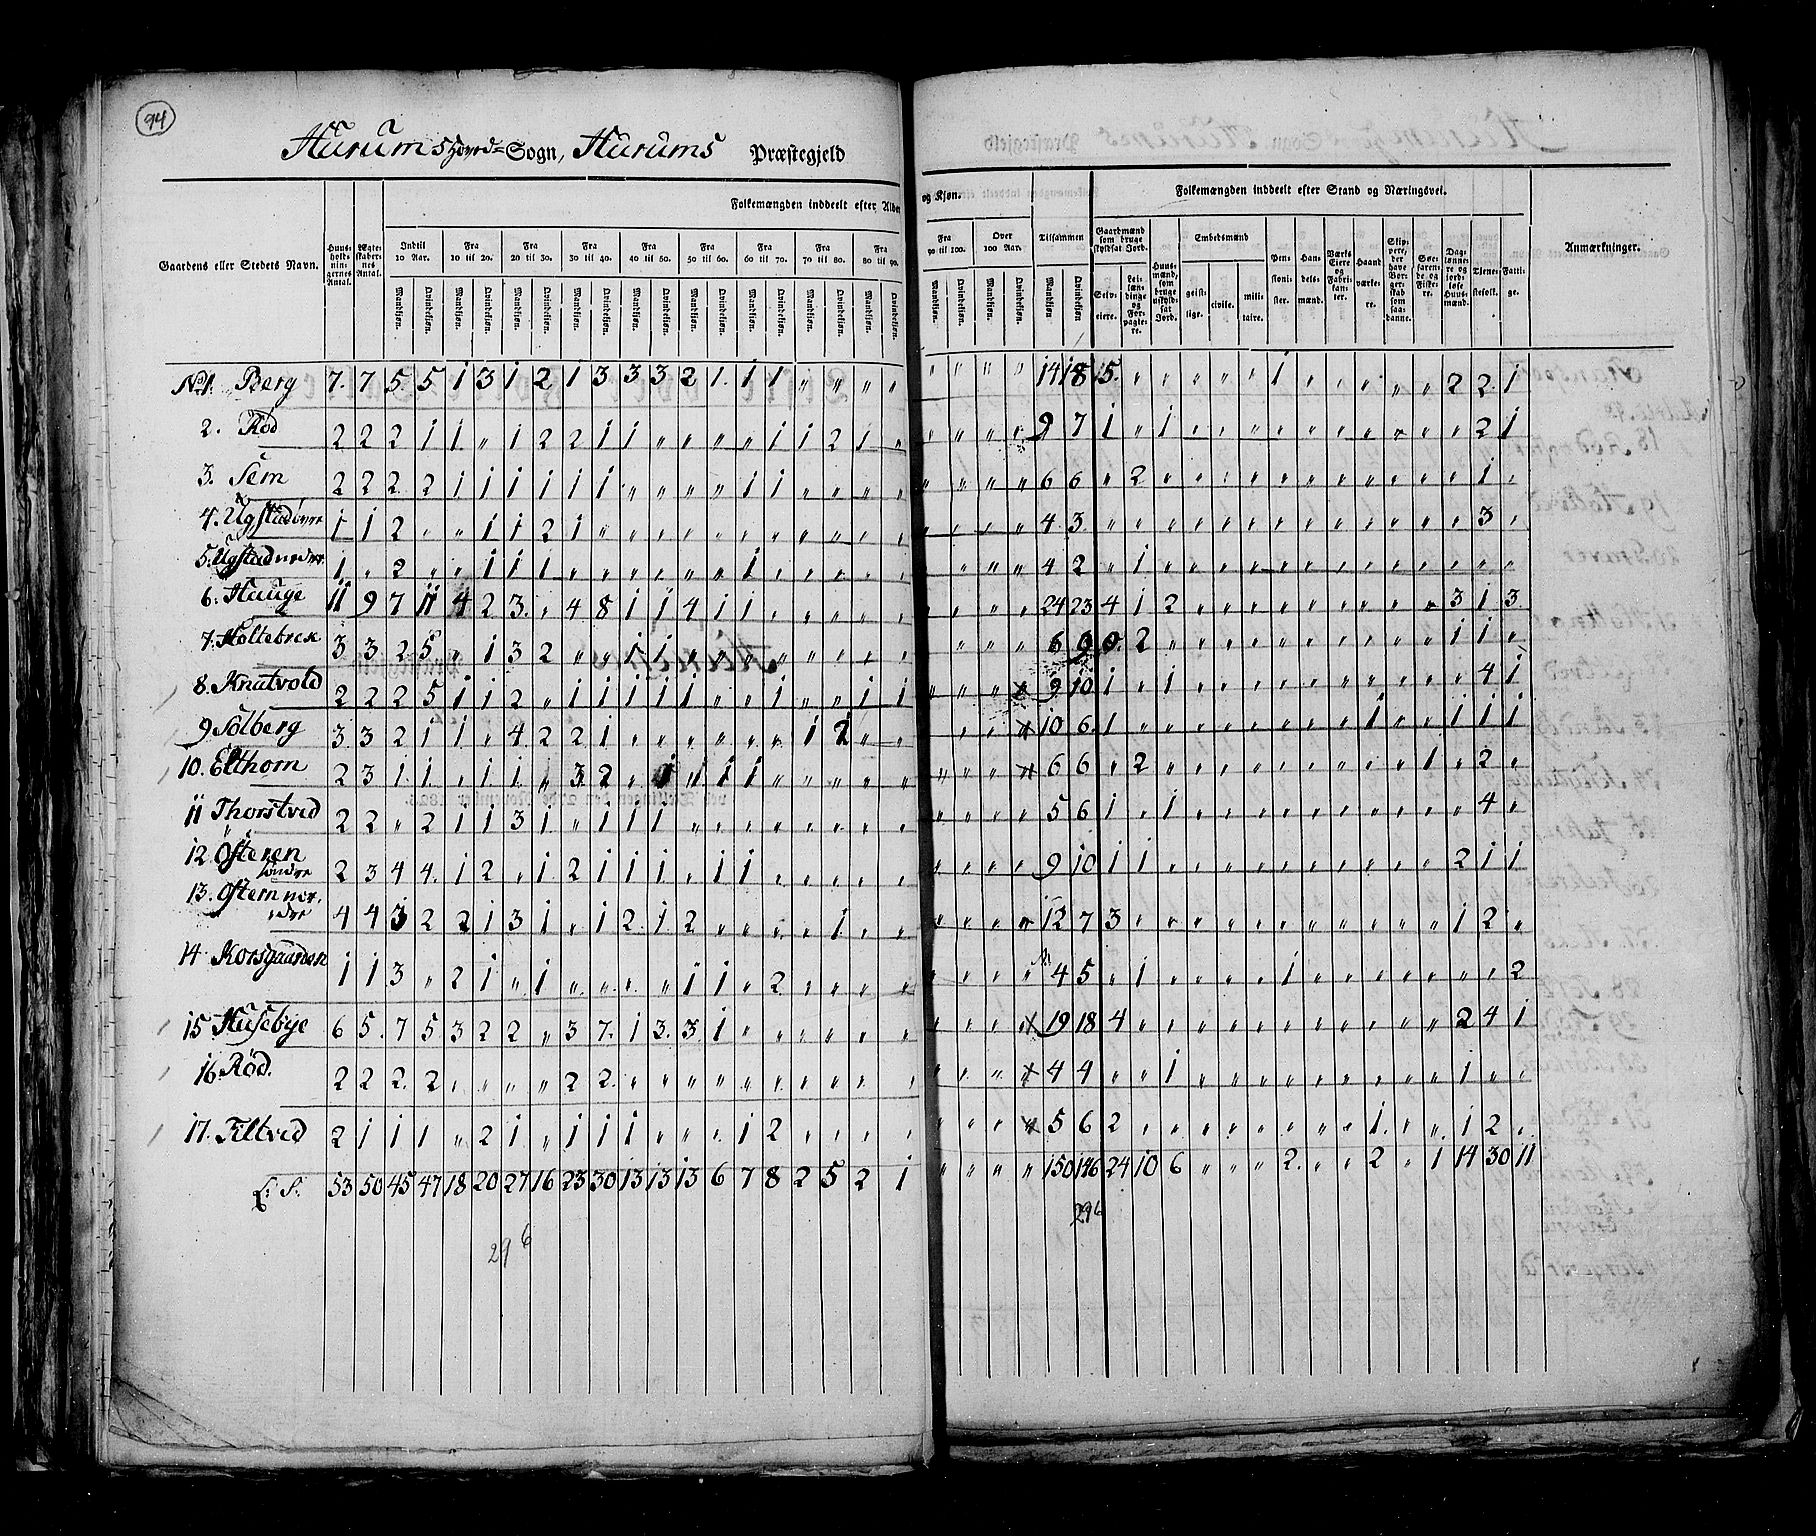 94
Hurums Hoved= Sogn, Hurums Præstegjeld
Gaardens eller Stedets Navn.
Huus-holdnin-gernes Antal.
Ægte-skaber-nes Antal.
Folkemængden inddeelt efter Alder og Kjøn.
Indtil 10 Aar. Fra 10 til 20. Fra 20 til 30. Fra 30 til 40. Fra 40 til 50. Fra 50 til 60. Fra 60 til 70. Fra 70 til 80. Fra 80 til 90. Fra 90 til 100. Over 100 Aar. Tilsammen
Mandkjøn. Qvindekjøn.
Folkemængden inddeelt efter Stand og Næringsvei.
Gaardmænd som bruge skyldsat Jord. Selv-eiere. Lei-lændinge og For-pagtere.
Huus-mænd, som bruge uskyld-sat Jord.
Embedsmænd geist-lige. civile. mili-taire.
Pen-sioni-ster. Han-dels-mænd. Værks-Eiere og Fabri-kan-ter. Haand-værke-re. Skip-pere, der have Bor-ger-skab som saa-danne. Søe-farende og Fiske-re. Dag-lønne-re og jord-løse Huus-mænd. Tjene-stefolk. Fatti-ge.
Anmærkninger.
No 1. Berg 7. 7 5 5 1 3 1 2 1 3 3 3 2 1. 1 1 " " " " " " " " 14 18 5. " " " " " 1 " " " " " 2 2. 1
2. Röd 2 2 2 1 1. " 1 2 2 1 1 " " " " 1 1 2 1 " " " " " 9 7 1 " 1 " " " " " " " " " " 2 1
3. Sem 2 2 2. 2 1 1 1 1 1 1 " " " " 1 1 " " " " " " " " 6 6 " 2 " " " " " " " " " " " 1 "
4. Ugstad övre 1 1 2 " " 1 1 2 1 " " " " " " " " " " " " " " " 4 3. " " " " " " " " " " " " " 3 "
5. Ugstad nedre 1 " 2 " " 1 1 1 " " " " " " 1 " " " " " " " " " 4 2 " 1 " " " " " " " " " " " " "
6. Hauge 11 9 7 11 4 2 3. " 4 8 1 1 4 1 1 " " " " " " " " " 24 23 4 1 2 " " " " " " " " " 3 1 3
7. Holtebrek 3 3 2 5. " 1 3 2 " " 1 1 " " " " " " " " " " " " 6 9 0. 2 " " " " " " " " " " 1 1 "
8. Knatvold 2 2 2 5 1 1 2 " 1 1 1 1 1 " " 1 " " 1 1 " " " " 9 10 1 " 1 " " " " " " " " " " 4 1
9. Solberg 3 3 2 1 1 " 4. 2 2 1 " " " " " " 1 2 " " " " " " 10 6. 1 " " " " " " " " 1 " " 1 1 1
10. Elthorn 2 3 1. 1. " 1. 1. " 3 2 " 1 1 1 1 " " " " " " " " " 6 6 " 2 " " " " " " " " " 1 " 2 "
11 Thorstvid 2 2 " 2 1 1 3 1 " 1 1 1 " " " " " " " " " " " " 5 6 1 " 1 " " " " " " " " " " 4 "
12 Österen söndre 2 3 4 4. 1 2 " 1 2 1 1 1 " 1 1 " " " " " " " " " 9 10 1 1 " " " " " " " " " " 2 1 1
13. Östern nordre 4 4 3 2 2 1 3 1 " 1 2. 1 2 " " " " 1 " " " " " " 12 7 3 " " " " " " " " " " " 1 2 "
14 Korsgaarden 1 1 3 " 2 1 " 1 " " " " 1 1 " 2 " " " " " " " " 4 5 " 1 " " " " 1 " " " " " " " 2
15 Husebye 6 5. 7 5 3 2 2 " 3 7. 1 3. 3. 1 " " " " " " " " " " 19 18 4 " " " " " " " " " " " 2 4 1
16. Röd. 2 2 2. 2 " " " " 2 2. " " " " " " " " " " " " " " 4 4 " " 1 " " " " " " " " " 1 " "
17. Filtvid 2 1 1 1 " 2 1 " 1 1 1 " " " 1 2 " " " " " " " " 5 6 2 " " " " " " " " 1. " " 1 2 "
L. S. 53 50 45 47 18 20 27 16 23 30 13 13 13 6 7 8 2 5 2 1 " " " " 150 146 24 10 6 " " " 2. " " 2 " 1 14 30 11
296
296